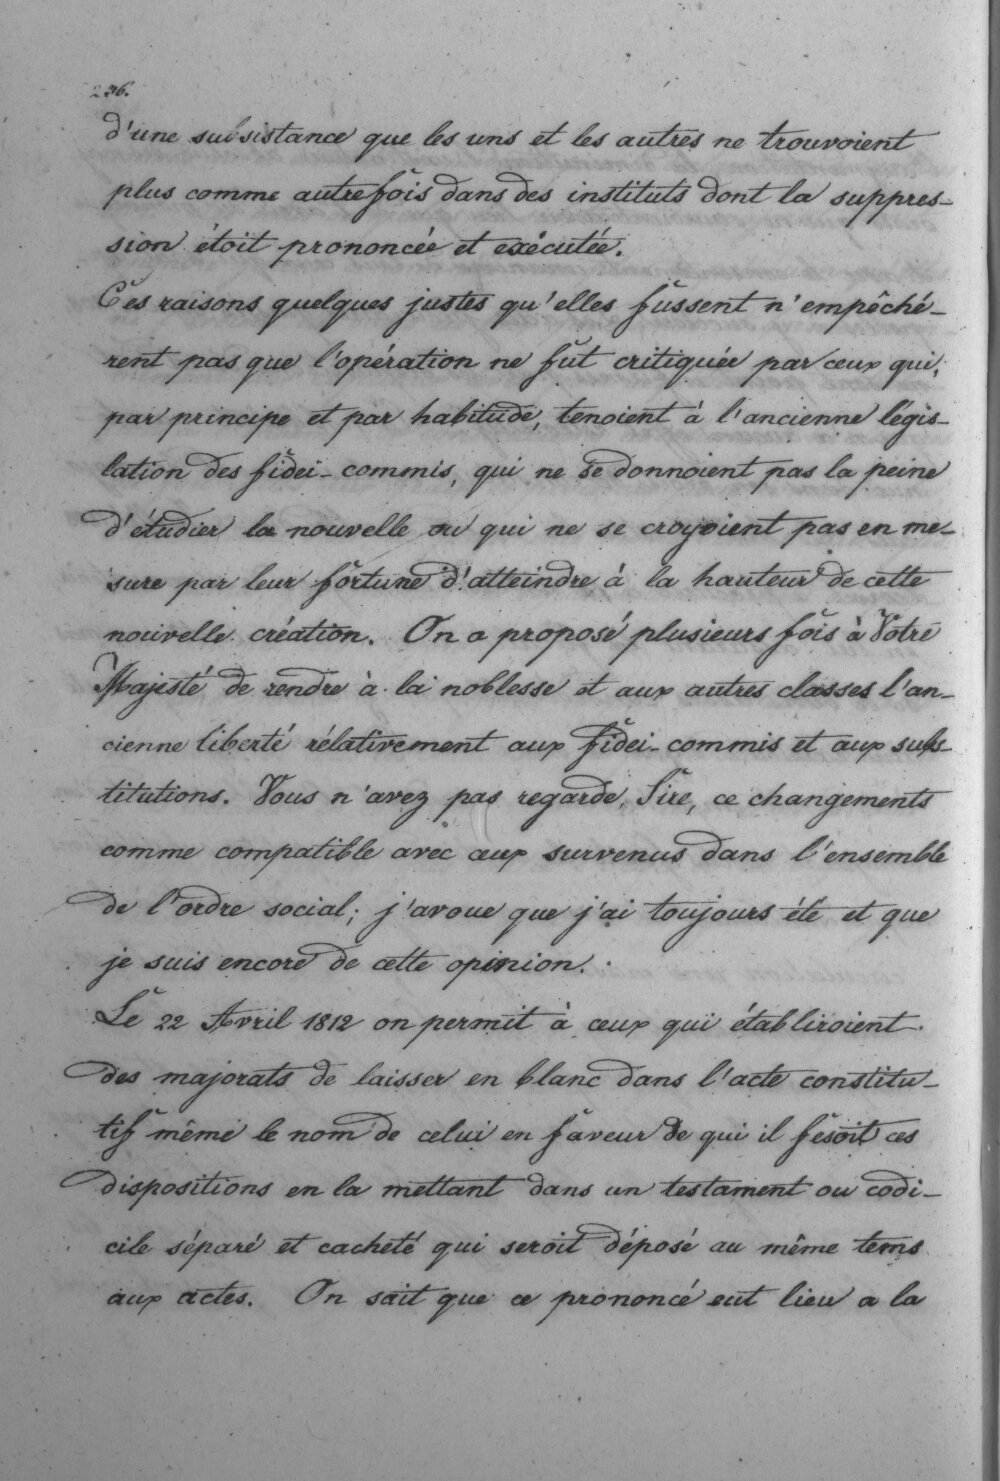 236.
d'une subsistance que les uns et les autres ne trouvoient
plus comme autrefois dans des instituts dont la suppres-
sion étoit prononcée et exécutée.
Ces raisons quelques justes qu'elles fussent n'empêché-
rent pas que l'opération ne fut critiquée par ceux qui,
par principe et par habitude, tenoient à l'ancienne légis-
lation des fidei-commis, qui ne se donnoient pas la peine
d'étudier la nouvelle ou qui ne se croyoient pas en me-
sure par leur fortune d'atteindre à la hauteur de cette
nouvelle création. On a proposé plusieurs fois à Votre
Majesté de rendre à la noblesse et aux autres classes l'an-
cienne liberté rélativement aux fidei-commis et aux subs-
titutions. Vous n'avez pas regardé, Sire, ce changements
comme compatible avec ceux survenus dans l'ensemble
de l'ordre social; j'avoue que j'ai toujours été et que
je suis encore de cette opinion.
Le 22 Avril 1812 on permit à ceux qui établiroient
des majorats de laisser en blanc dans l'acte constitu-
tif même le nom de celui en faveur de qui il fesoit ces
dispositions en la mettant dans un testament ou codi-
cile séparé et cacheté qui seroit déposé au même tems
aux actes. On sait que ce prononcé eut lieu a la